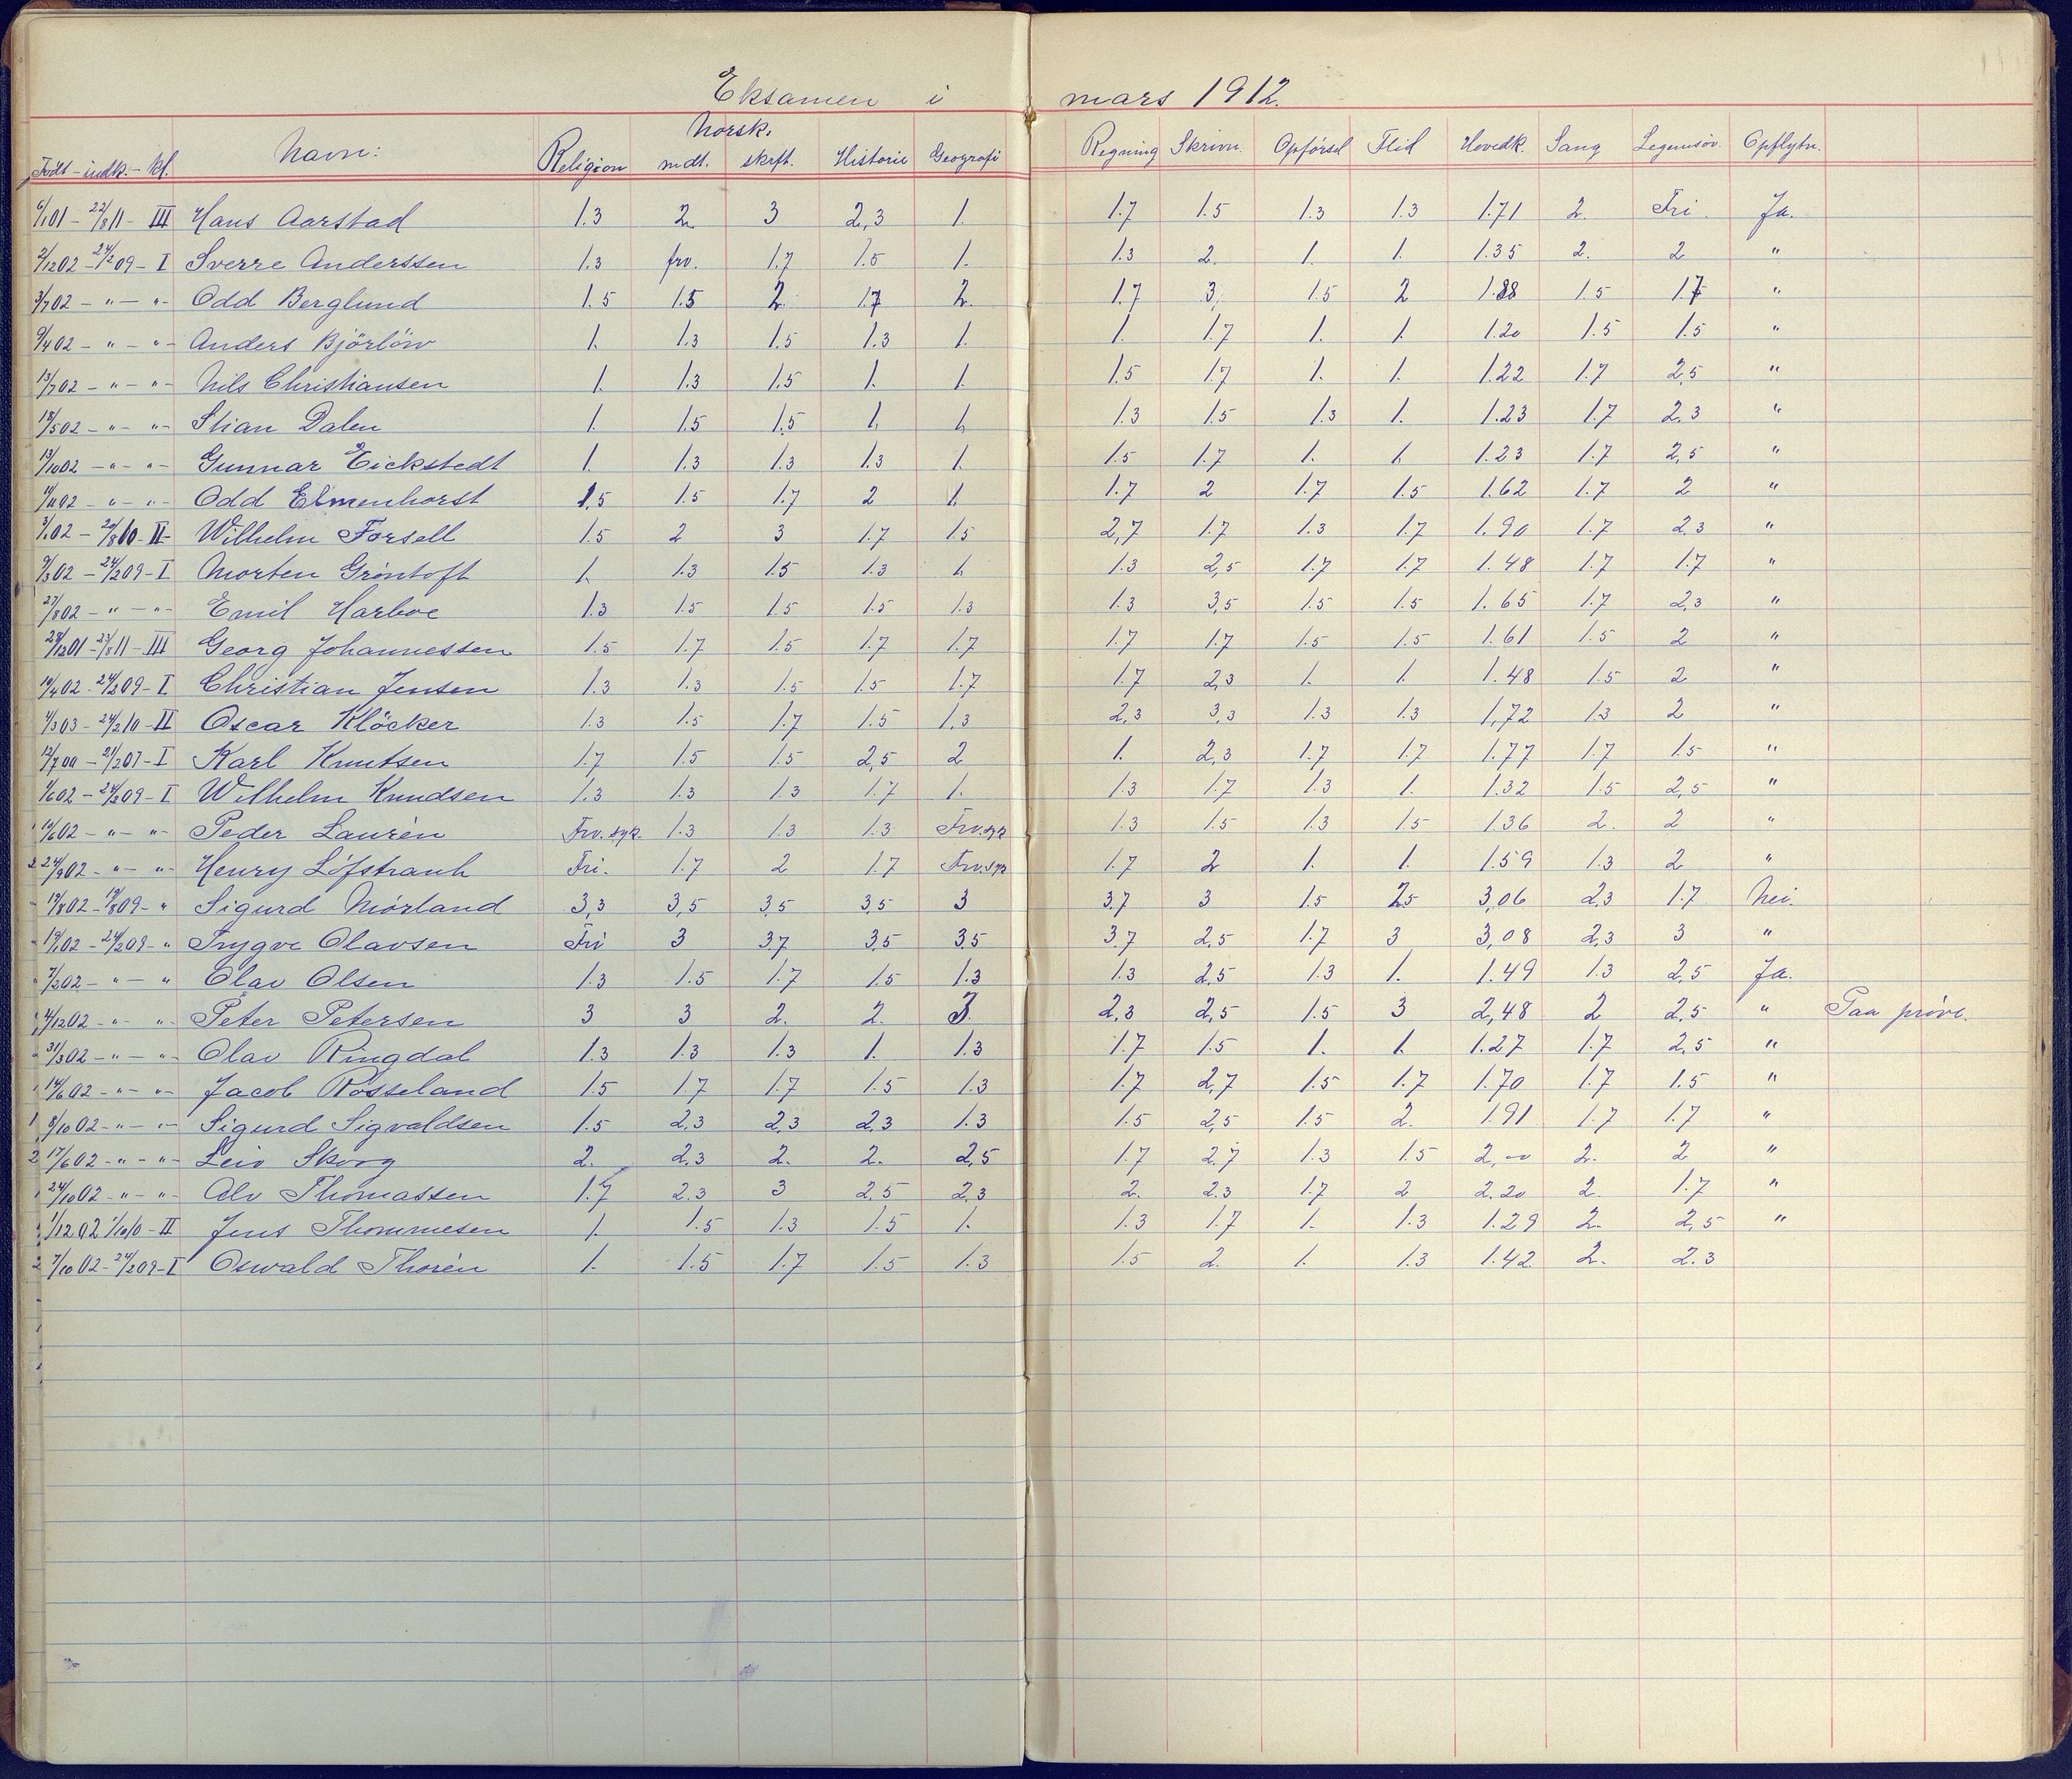 Eksamen i mars 1912.
Født - indk. - kl. Navn: Religion Norsk: mdt. skrft. Historie Geografi Regning Skrivn. Opførsel Flid Hovedk. Sang Legemsøv. Opflytn.
6/1 01 - 22/8 11 - III Hans Aarstad 1.3 2 3 2,3 1. 1.7 1.5 1.3 1.3 1.71 2. Fri. Ja.
2/12 02 - 24/2 09 - I Sverre Anderssen 1.3 frv. 1.7 1.5 1. 1.3 2. 1. 1. 1.35 2. 2 "
3/7 02 - " - " - Odd Berglund 1.5 1.5 2 1.7 2. 1.7 3, 1.5 2 1.88 1.5 1.7 "
9/4 02 - " - " - Anders Bjørløw 1. 1.3 1.5 1.3 1. 1. 1.7 1. 1. 1.20 1.5 1.5 "
13/7 02 - " - " - Nils Christiansen 1. 1.3 1.5 1. 1. 1.5 1.7 1. 1. 1.22 1.7 2,5 "
18/5 02 - " - " - Stian Dalen 1. 1.5 1.5 1. 1. 1.3 1.5 1.3 1. 1.23 1.7 2,3 "
13/10 02 - " - " - Gunnar Eickstedt 1. 1.3 1.3 1.3 1. 1.5 1.7 1. 1. 1.23 1.7 2,5 "
11/11 02 - " - " - Odd Elmenhorst 1,5 1.5 1.7 2 1. 1.7 2 1.7 1.5 1.62 1.7 2 "
3/1 02 - 20/8 10 - II - Wilhelm Forsell 1.5 2 3 1.7 1.5 2,7 1.7 1.3 1.7 1.90 1.7 2,3 "
9/3 02 - 24/2 09 - I Morten Grøntoft 1. 1.3 1.5 1.3 1. 1.3 2,5 1.7 1.7 1.48 1.7 1.7 "
27/8 02 - " - " - Emil Harboe 1.3 1.5 1.5 1.5 1.3 1.3 3,5 1.5 1.5 1.65 1.7 2,3 "
28/12 01 - 23/8 11 - III Georg Johannessen 1.5 1.7 1.5 1.7 1.7 1.7 1.7 1.5 1.5 1.61 1.5 2 "
10/4 02 - 24/2 09 - I Christian Jensen 1.3 1.3 1.5 1.5 1.7 1.7 2,3 1. 1. 1.48 1.5 2 "
4/3 03 - 24/2 10 - II Oscar Kløcker 1.3 1.5 1.7 1.5 1,3 2,3 3,3 1.3 1.3 1,72 1.3 2 "
12/7 00 - 21/2 07 - I Karl Knutsen 1.7 1.5 1.5 2,5 2 1. 2,3 1.7 1.7 1.77 1.7 1.5 "
1/6 02 - 24/2 09 - I Wilhelm Knudsen 1.3 1.3 1.3 1.7 1. 1.3 1.7 1.3 1. 1.32 1.5 2,5 "
10/6 02 - " - " - Peder Laurèn Frv. syk. 1.3 1.3 1.3 Frv. syk 1.3 1.5 1.3 1.5 1.36 2. 2 "
24/9 02 - " - " - Henry Löfstrank Fri. 1.7 2 1.7 Frv. syk 1.7 2 1. 1. 1.59 1.3 2 "
19/8 02 - 19/8 09 - " Sigurd Mørland 3,3 3,5 3,5 3,5 3 3,7 3 1.5 2,5 3,06 2,3 1.7 Nei.
19/1 02 - 24/2 09 - " Trygve Olavsen Fri 3 3,7 3,5 3,5 3,7 2,5 1.7 3 3,08 2,3 3 "
7/2 02 - " - " Olav Olsen 1.3 1.5 1.7 1.5 1.3 1.3 2,5 1.3 1. 1.49 1.3 2,5 Ja.
4/12 02 - " - " - Peter Petersen 3 3 2. 2. 3. 2,3 2,5 1.5 3 2,48 2 2,5 " Paa prøve.
31/3 02 - " - " - Olav Ringdal 1.3 1.3 1.3 1. 1.3 1.7 1.5 1. 1. 1.27 1.7 2,5 "
14/6 02 - " - " - Jacob Rosseland 1.5 1.7 1.7 1.5 1.3 1.7 2,7 1.5 1.7 1.70 1.7 1.5 "
8/10 02 - " - " - Sigurd Sigvaldsen 1.5 2,3 2,3 2,3 1.3 1.5 2,5 1.5 2. 1.91 1.7 1.7 "
17/6 02 - " - " - Leiv Skovg 2. 2,3 2. 2. 2,5 1.7 2.7 1.3 1.5 2,00 2. 2 "
24/10 02 - " - " - Alv Thomassen 1.7 2.3 3 2,5 2,3 2. 2.3 1.7 2 2.20 2. 1.7 "
1/12 02 1/10 10 - II Jens Thommesen 1. 1.5 1.3 1.5 1. 1.3 1.7 1. 1.3 1.29 2. 2,5 "
7/10 02 - 24/2 09 - I Oswald Thorèn 1. 1.5 1.7 1.5 1.3 1.5 2. 1. 1.3 1.42 2. 2.3